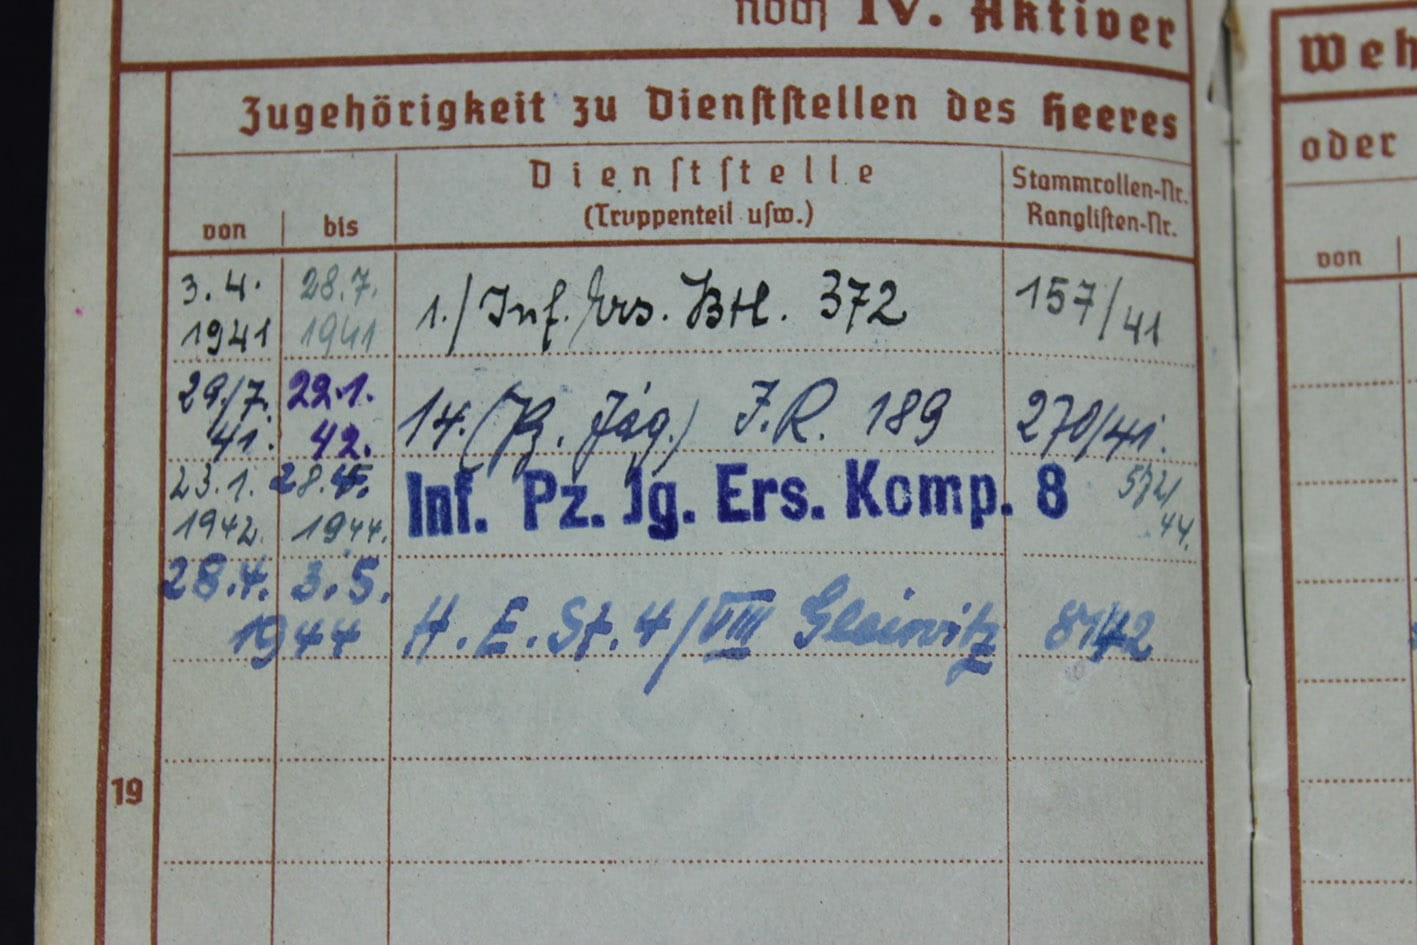 noch IV. Aktiver
Zugehörigkeit zu Dienststellen des Heeres
von
bis
Dienststelle
(Truppenteil usw.)
Stammrollen-Nr.
Ranglisten-Nr.
3. 4. 1941
28.7. 1941
1./ Inf. Ers. Btl. 372
157/41
29/7. 41.
22.1. 42.
14. (Pz. Jäg.) I.R. 189
270/41.
23.1. 1942.
28.4. 1944.
Inf. Pz. Jg. Ers. Komp. 8
572/44.
28.4. 3.5.
1944
H. E. St. 4/VIII Gleiwitz
8142
19
Weh
oder
von